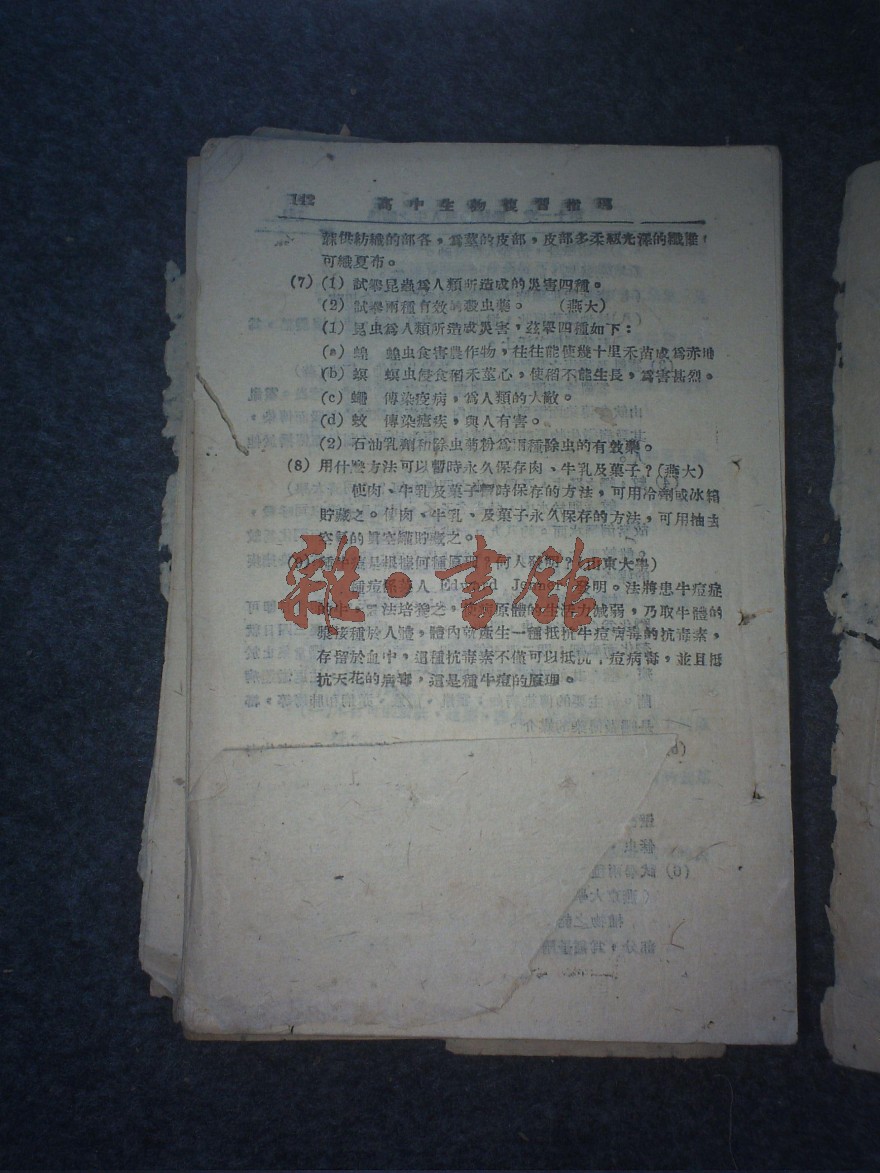 142 高中生物複習指導
蔴供紡織的部各，爲莖的皮部，皮部多柔韌光澤的纖維，
可織夏布。
(7) (1) 試舉昆蟲爲人類所造成的災害四種。
(2) 試舉兩種有效的殺虫藥。 (燕大)
(1) 昆虫爲人類所造成災害，茲舉四種如下：
(a) 蝗 蝗虫食害農作物，往往能使幾十里禾苗成爲赤地
(b) 螟 螟虫侵食稻禾莖心，使稻不能生長，爲害甚烈。
(c) 蠅 傳染疫病，爲人類的大敵。
(d) 蚊 傳染瘧疾，與人有害。
(2) 石油乳劑和除虫菊粉爲兩種除虫的有效藥。
(8) 用什麼方法可以暫時永久保存肉、牛乳及菓子？(燕大)
使肉、牛乳及菓子暫時保存的方法，可用冷劑或冰箱
貯藏之。使肉、牛乳、及菓子永久保存的方法，可用抽去
空氣的眞空罐貯藏之。
(9) 種牛痘是根據何種原理？何人發明？(山東大學)
種痘係 人 Edward Jenner 發明。法將患牛痘症
的牛， 法培養之， 病原體的生活力減弱，乃取牛體的
漿接種於人體，體內就產生一種抵抗牛痘病毒的抗毒素，
存留於血中，這種抗毒素不僅可以抵抗牛痘病毒，並且抵
抗天花的病毒，這是種牛痘的原理。
雜·書館